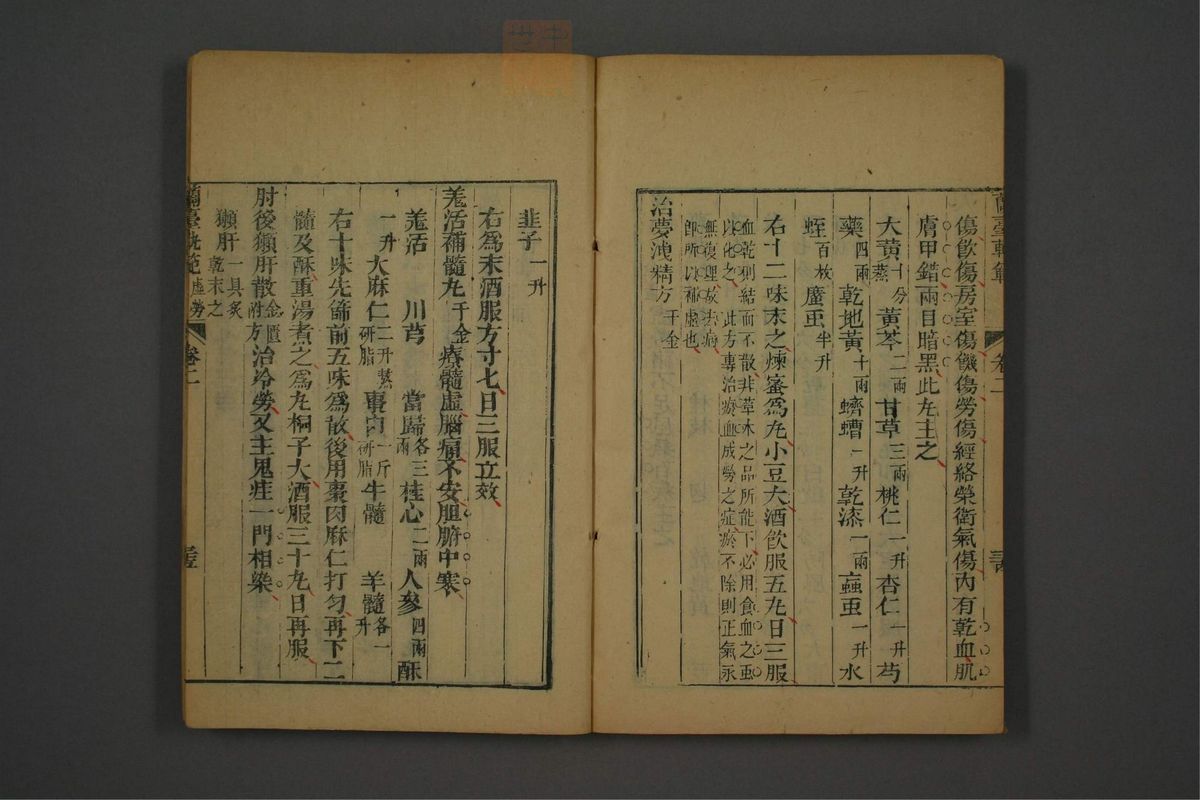 蘭臺軌範 卷二
傷飲傷房室傷饑傷勞傷經絡榮衛氣傷內有乾血肌
膚甲錯兩目暗黑此丸主之
大黃十分蒸 黃芩二兩 甘草三兩 桃仁一升 杏仁一升 芍
藥四兩 乾地黃十兩 蠐螬一升 乾漆一兩 蝱蟲一升 水
蛭百枚 䗪蟲半升
右十二味末之煉蜜爲丸小豆大酒飲服五丸日三服
血乾則結而不散非草木之品所能下必用食血之蟲
以化之 此方專治瘀血成勞之症瘀不除則正氣永
無復理故去病
卽所以補虛也
治夢洩精方千金
韭子一升
右爲末酒服方寸七日三服立效
羗活補髓丸千金療髓虛腦痛不安胆腑中寒
羗活 川芎 當歸各三兩 桂心二兩 人參四兩 酥
一升 大麻仁二升蒸研脂 棗肉一斤研脂 牛髓 羊髓各一升
右十味先篩前五味爲散後用棗肉麻仁打勻再下二
髓及酥重湯煮之爲丸桐子大酒服三十丸日再服
肘後獺肝散金匱附方治冷勞又主鬼疰一門相染
獺肝一具炙
乾末之
蘭臺軌範 虛勞 卷二